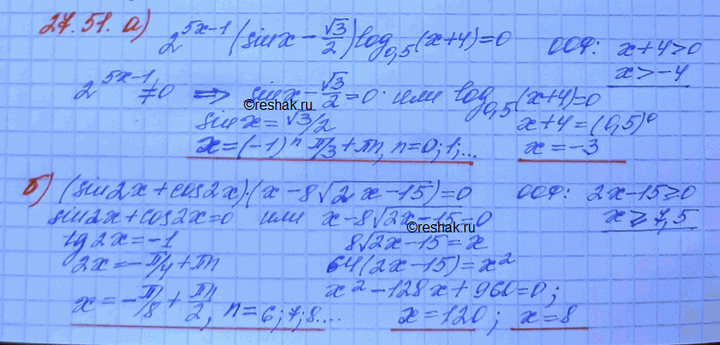 27.51. а) 2^(5x-1) (sinx - √3/2) log_0,5 (x+4) = 0   ООФ: x+4>0
x>-4
2^(5x-1) ≠ 0 ⇒ sinx - √3/2 = 0 или log_0,5 (x+4) = 0
©reshak.ru
sinx = √3/2   x+4 = (0,5)^0
x = (-1)^n π/3 + πn, n=0; 1;...   x = -3
б) (sin2x + cos2x)·(x - 8√(2x-15)) = 0   ООФ: 2x-15 ≥ 0
sin2x + cos2x = 0 или x - 8√(2x-15) = 0   x ≥ 7,5
©reshak.ru
tg2x = -1   8√(2x-15) = x
2x = -π/4 + πn   64(2x-15) = x²
x² - 128x + 960 = 0;
x = -π/8 + πn/2, n=6; 7; 8....   x = 120; x = 8